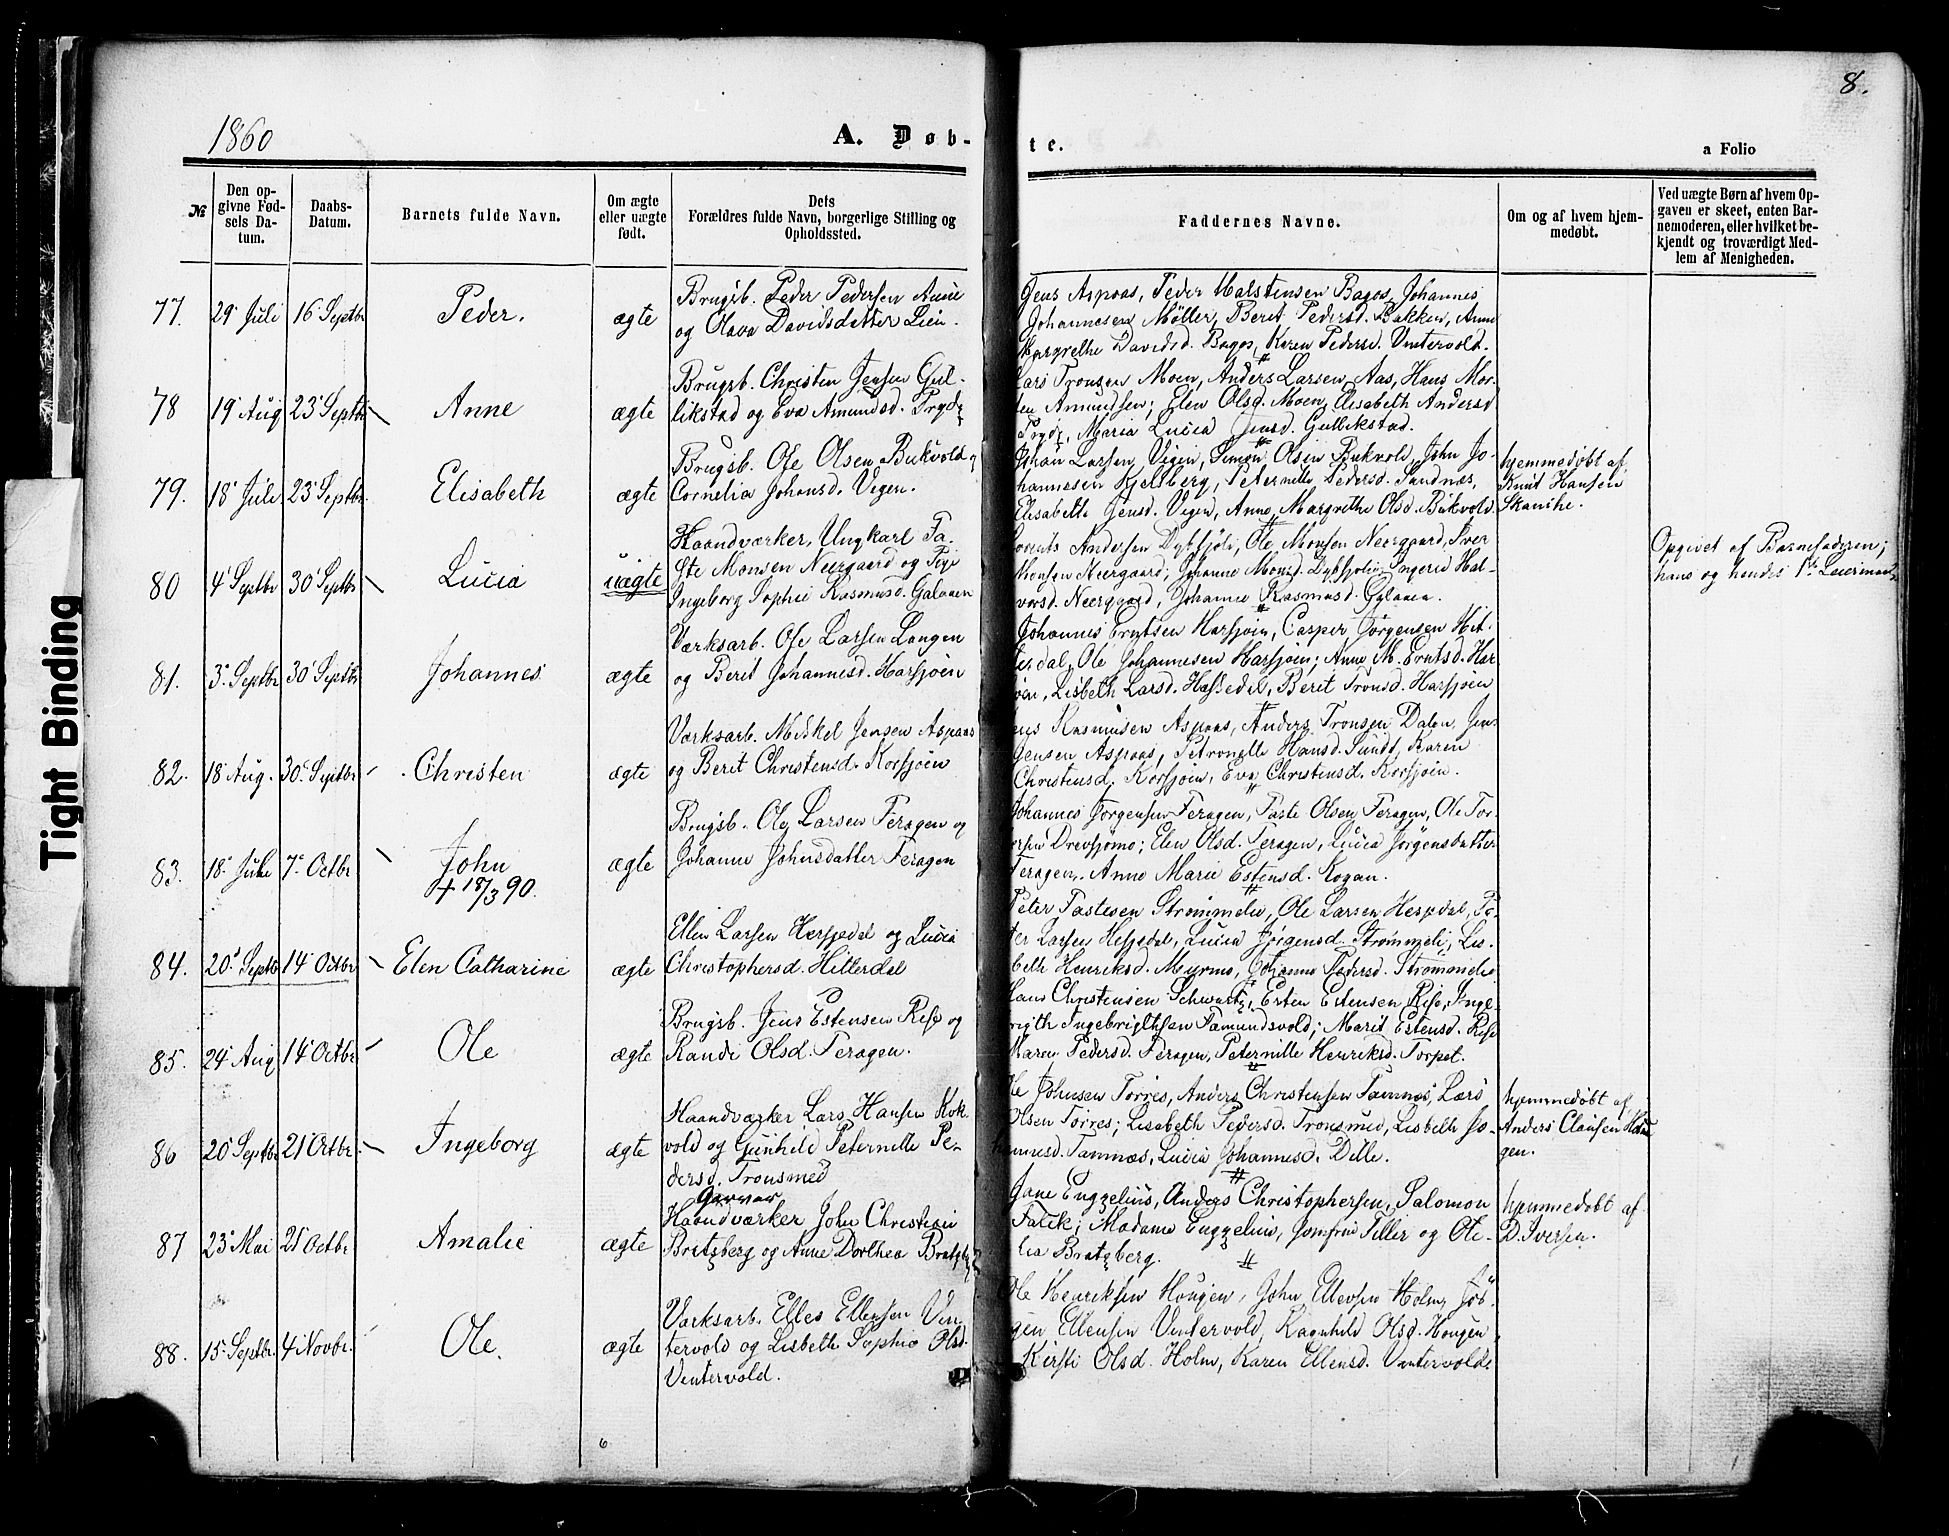 8.
1860
A. Døb-
te.
a Folio
№
Den op-
givne Fød-
sels Da-
tum.
Daabs-
Datum.
Barnets fulde Navn.
Om ægte
eller uægte
født.
Dets
Forældres fulde Navn, borgerlige Stilling og
Opholdssted.
Faddernes Navne.
Om og af hvem hjem-
medøbt.
Ved uægte Børn af hvem Op-
gaven er skeet, enten Bar-
nemoderen, eller hvilket be-
kjendt og troværdigt Med-
lem af Menigheden.
77. 29 Juli 16 Septbr Peder. ægte
Brugsb. Peder Pedersen Aune
og Olava Davidsdatter Lien.
Jens Aspaas, Peder Halstensen Bagos, Johannes
Johannesen Møller, Berit Pedersd. Bakken, Anne
Margrethe Davidsd. Bagos, Karen Pedersd. Vintervold.
78 19 Aug 23 Septbr Anne ægte
Brugsb. Christen Jensen Gul-
likstad og Eva Amundsd. Prydz
Lars Tronsen Moen, Anders Larsen Aas, Hans Mor-
ten Amundsen; Elen Olsd. Moen, Elisabeth Andersd
Prydz, Maria Lucia Jensd. Gullikstad.
79. 18 Juli 23 Septbr. Elisabeth ægte
Brugsb. Ole Olsen Bukvold og
Cornelia Johansd. Vigen.
Johan Larsen Vigen, Simon Olsen Bukvold, John Jo-
hannesen Kjelsberg, Peternelle Pedersd. Sandnæs,
Elisabeth Jensd. Vigen, Anne Margrethe Olsd. Bukvold.
hjemmedøbt af
Knut Hansen
Skancke.
80 4 Septbr 30 Septbr Lucia uægte
Haandværker, Ungkarl Ta-
ste Monsen Neergaard og Pige
Ingeborg Sophie Rasmusd. Galaaen
Lorents Andersen Dybsjøli, Ole Monsen Neergaard, Iver
Monsen Neergaard; Johanne Monsd. Dybsjøli, Ingerid Hal-
vorsd. Neergaard, Johanne Rasmusd. Galaaen.
Opgivet af Barnefaderen;
hans og hendes 1ste Leiermaal
81. 3 Septbr 30 Septbr Johannes ægte
Værksarb. Ole Larsen Langen
og Berit Johannesd. Harsjøen
Johannes Erntsen Harsjøen, Casper Jørgensen Hit-
terdal, Ole Johannesen Harsjøen; Anne M. Erntsd. Har-
sjøen, Lisbeth Larsd. Hessedal, Berit Tronsd. Harsjøen
82. 18 Aug. 30 Septbr Christen ægte
Værksarb. Mikkel Jensen Aspaas
og Berit Christensd. Korsjøen
Jens Rasmusen Aspaas, Anders Tronsen Dalen, Jens
Jensen Aspaas, Petronelle Hansd. Sundt, Karen
Christensd. Korsjøen, Eva Christensd. Korsjøen.
83. 18 Juli 7 Octbr John ægte
+ 18/3 90.
Brugsb. Ole Larsen Feragen og
Johanne Johnsdatter Feragen
Johannes Jørgensen Feragen, Taste Olsen Feragen, Ole Tor-
Drevsjømo; Elen Olsd. Feragen, Lucia Jørgensdatter
Feragen, Anne Marie Estensd. Kogan.
84. 20 Septbr 14 Octbr Elen Catharine ægte
Ellen Larsen Hessedal og Lucia
Christophersd. Hitterdal
Peter Tastesen Strømmelie, Ole Larsen Hessedal, Pe-
ter Larsen Hessedal, Lucia Jørgensd. Strømmeli, Lis-
beth Henriksd. Myrmo, Johanne Pedersd. Strømmelie
85. 24 Aug 14 Octbr Ole ægte
Brugsb. Jens Estensen Rise og
Randi Olsd. Feragen.
Hans Christensen Schwartz, Esten Estensen Rise, Inge-
brigth Ingebrigthsen Femundsvold; Marit Estensd. Rise
Maren Pedersd. Feragen, Peternille Henriksd. Torpet.
86 20 Septbr 21 Octbr. Ingeborg ægte
Haandværker Lars Hansen Kok-
vold og Gunhild Peternelle Pe-
dersd. Tronsmed
Ole Johnsen Torres, Anders Christensen Tamnæs, Lars
Olsen Torres; Lisabeth Pedersd. Tronsmed, Lisbeth Jo-
hannesd. Tamnæs, Lucia Johannesd. Dille.
hjemmedøbt af
Anders Clausen Hau-
gen.
87 23 Mai 21 Octbr. Amalie ægte
Garver
Haandværker John Christian
Bratsberg og Anne Dorthea Bratzberg
Jane Engzelius, Anders Christophersen, Salomon
Falck; Madame Engzelius, Jomfru Tiller og Ole-
lia Bratzberg.
hjemmedøbt af
D. Iversen.
88. 15 Septbr. 4 Novbr. Ole. ægte
Værksarb. Elles Ellensen Vin-
tervold og Lisbeth Sophie Olsd.
Vintervold.
Ole Henriksen Hougen, John Ellevsen Holm, Jør-
gen Ellensen Vintervold, Ragnhild Olsd. Hougen
Kirsti Olsd. Holm, Karen Ellensd. Vintervold.
6
Tight Binding